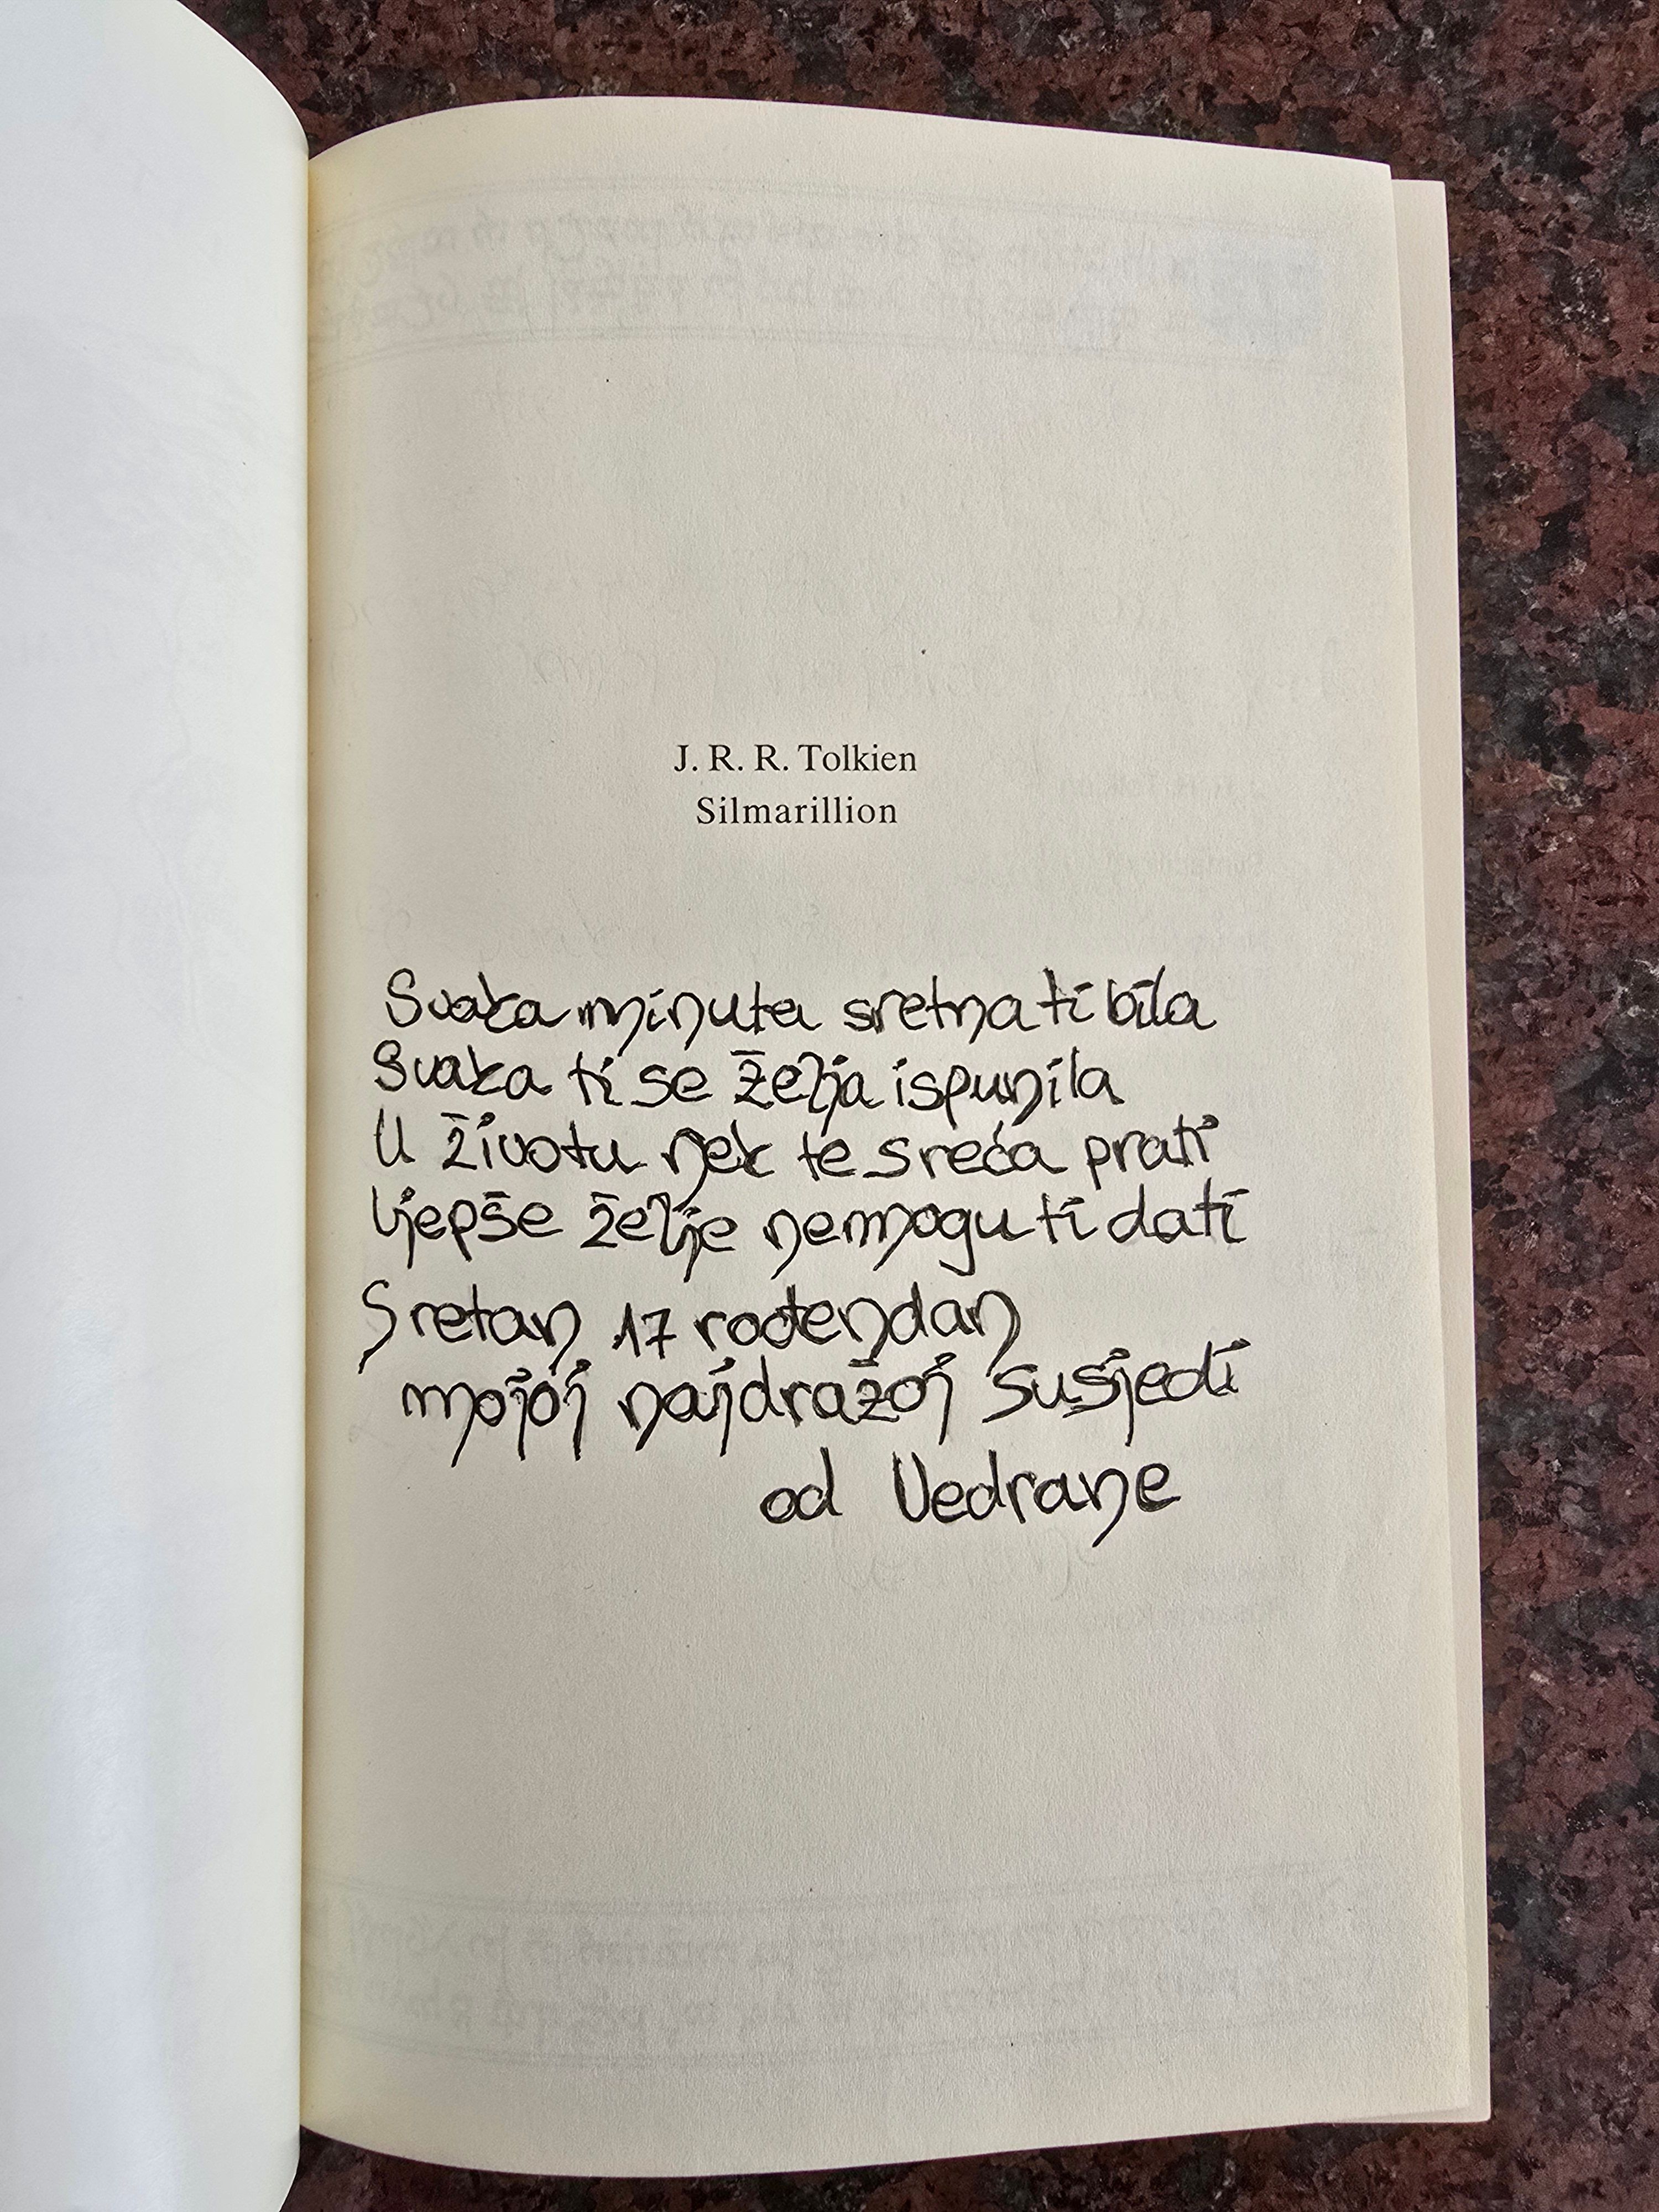 J. R. R. Tolkien
Silmarillion
Svaka minuta sretna ti bila
Svaka ti se želja ispunila
U životu nek te sreća prati
ljepše želje nemogu ti dati
Sretan 17 rođendan
mojoj najdražoj susjedi
od Vedrane